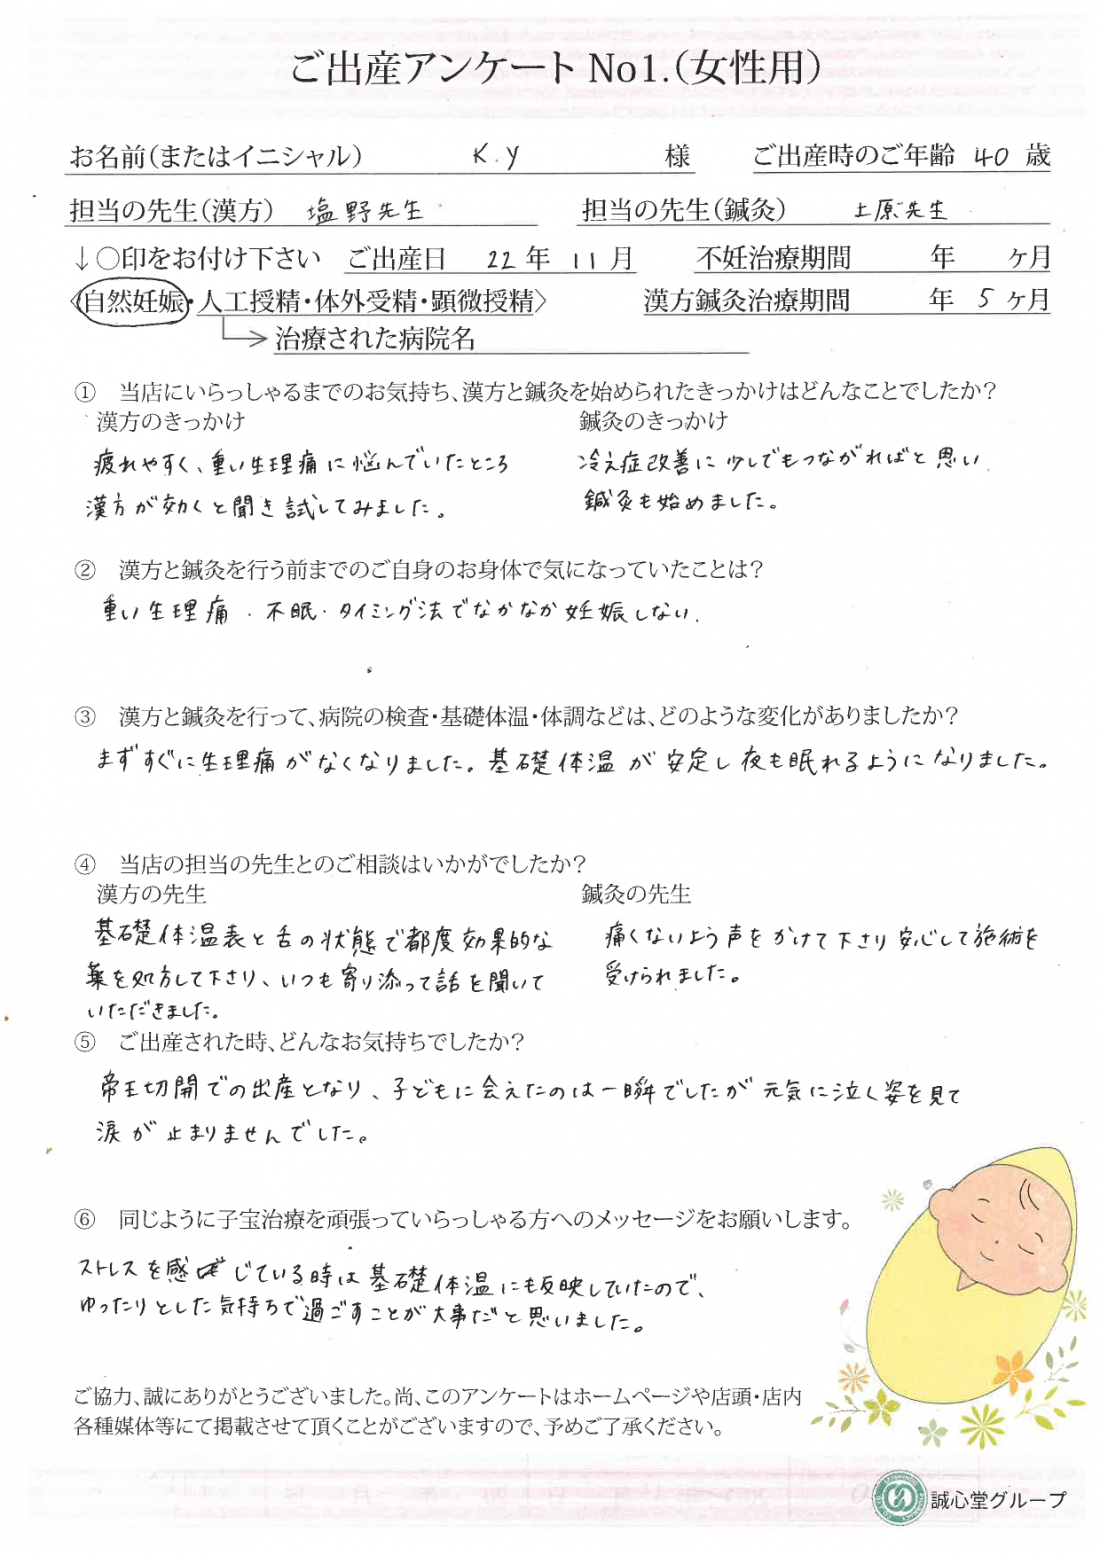 ご出産アンケート No1.(女性用)
お名前(またはイニシャル) K.Y 様 ご出産時のご年齢 40 歳
担当の先生(漢方) 塩野先生 担当の先生(鍼灸) 上原先生
↓〇印をお付け下さい ご出産日 22 年 11 月 不妊治療期間 年 ヶ月
〈自然妊娠・人工授精・体外受精・顕微授精〉 漢方鍼灸治療期間 年 5 ヶ月
治療された病院名
① 当店にいらっしゃるまでのお気持ち、漢方と鍼灸を始められたきっかけはどんなことでしたか?
漢方のきっかけ 鍼灸のきっかけ
疲れやすく、重い生理痛に悩んでいたところ 冷え症改善に少しでもつながればと思い
漢方が効くと聞き試してみました。 鍼灸も始めました。
② 漢方と鍼灸を行う前までのご自身のお身体で気になっていたことは?
重い生理痛・不眠・タイミング法でなかなか妊娠しない.
③ 漢方と鍼灸を行って、病院の検査・基礎体温・体調などは、どのような変化がありましたか?
まずすぐに生理痛がなくなりました。基礎体温が安定し夜も眠れるようになりました。
④ 当店の担当の先生とのご相談はいかがでしたか?
漢方の先生 鍼灸の先生
基礎体温表と舌の状態で都度効果的な 痛くないよう声をかけて下さり安心して施術を
薬を処方して下さり、いつも寄り添って話を聞いて 受けられました。
いただきました。
⑤ ご出産された時、どんなお気持ちでしたか?
帝王切開での出産となり、子どもに会えたのは一瞬でしたが元気に泣く姿を見て
涙が止まりませんでした。
⑥ 同じように子宝治療を頑張っていらっしゃる方へのメッセージをお願いします。
ストレスを感じている時は基礎体温にも反映していたので、
ゆったりとした気持ちで過ごすことが大事だと思いました。
ご協力、誠にありがとうございました。尚、このアンケートはホームページや店頭・店内
各種媒体等にて掲載させて頂くことがございますので、予めご了承ください。
誠心堂グループ